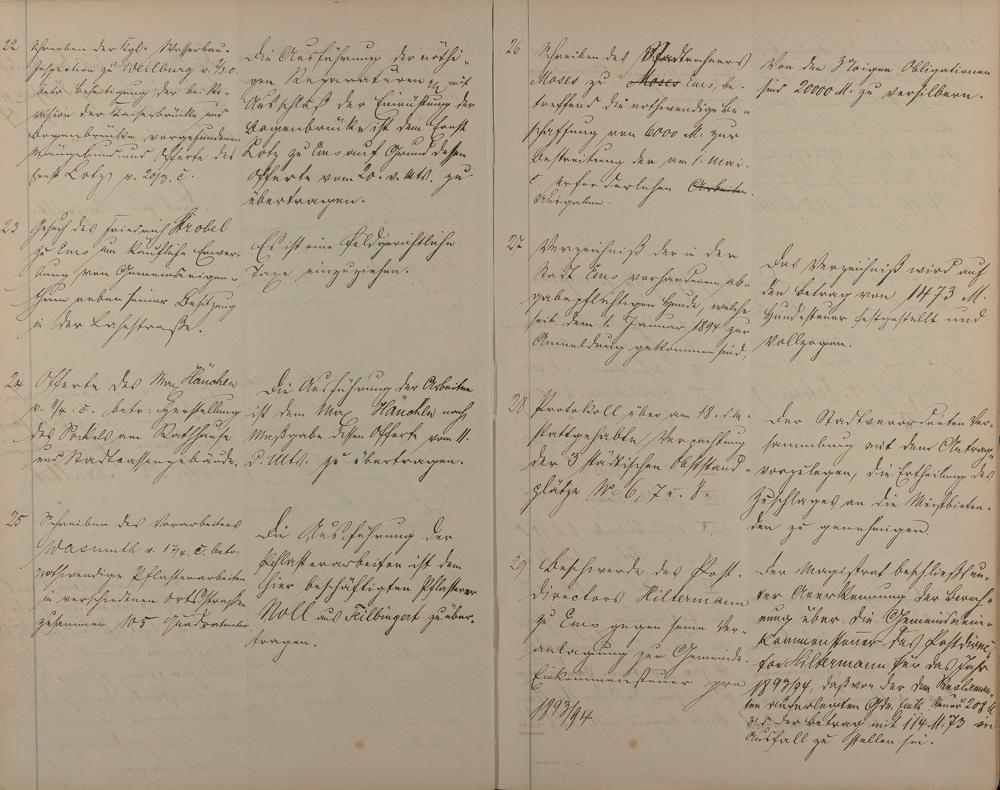 22
Schreiben der Kgl. Wasserbau-
Inspection zu Weilburg v. 7/3. c.
betr. Beseitigung der bei Re-
vision der Kaiserbrücke und
Bogenbrücke vorgefundenen
Mängel und Offerte des
Ernst Lotz v. 20/3. c.
Die Ausführung der nöthi-
gen Reparaturen mit
Ausschluß der Einrüstung der
Bogenbrücke ist dem Ernst
Lotz zu Ems auf Grund dessen
Offerte vom 20. v. Mts. zu
übertragen.
23
Gesuch des Friedrich Strobel
zu Ems um käufliche Erwer-
bung von Gemeindeeigen-
thum neben seiner Besitzung
in der Lahnstraße.
Es ist eine feldgerichtliche
Taxe einzuziehen.
24
Offerte des Max Häuchen
v. 11/4. c. betr. Herstellung
des Sockels am Rathhause
und Stadtcassengebäude.
Die Ausführung der Arbeiten
ist dem Max Häuchen nach
Maßgabe dessen Offerte vom 11.
d. Mts. zu übertragen.
25
Schreiben des Vorarbeiters
Wasmuth v. 17/4. c. betr.
nothwendige Pflasterarbeiten
in verschiedenen Ortsstraßen
zusammen 105 Quadratmeter
Die Ausführung der
Pflasterarbeiten ist dem
hier beschäftigten Pflasterer
Noll aus Feilbingert zu über-
tragen.
26
Schreiben des Stadtrechners
Moses zu Moses Ems, be-
treffend die nothwendige Be-
schaffung von 6000 M. zur
Bestreitung der am 1. Mai
c. erforderlichen Arbeiten
Ausgaben.
Von den 3%igen Obligationen
sind 20000 M. zu versilbern.
27
Verzeichniß der in der
Stadt Ems vorhandenen ab-
gabepflichtigen Hunde, welche
seit dem 1. Januar 1894 zur
Anmeldung gekommen sind.
Das Verzeichniß wird auf
den Betrag von 1473 M.
Hundesteuer festgestellt und
vollzogen.
28
Protokoll über am 18. d. M.
stattgehabte Verpachtung
der 3 städtischen Obststand-
plätze No. 6, 7 u. 8.
Der Stadtverordneten Ver-
sammlung mit dem Antrag
vorzulegen, die Ertheilung des
Zuschlages an die Meistbieten-
den zu genehmigen.
29
Beschwerde des Post-
directors Hiltermann
zu Ems gegen seine Ver-
anlagung zur Gemeinde-
Einkommensteuer pro
1893/94
Der Magistrat beschließt un-
ter Anerkennung der Berech-
nung über die Gemeindeein-
kommensteuer des Postdirec-
tor Hiltermann für das Jahr
1893/94, daß von der dem Reclaman-
ten auferlegten Gde. Eink. Steuer 208 M
der Betrag mit 114 M. 73 in
Ausfall zu stellen sei.